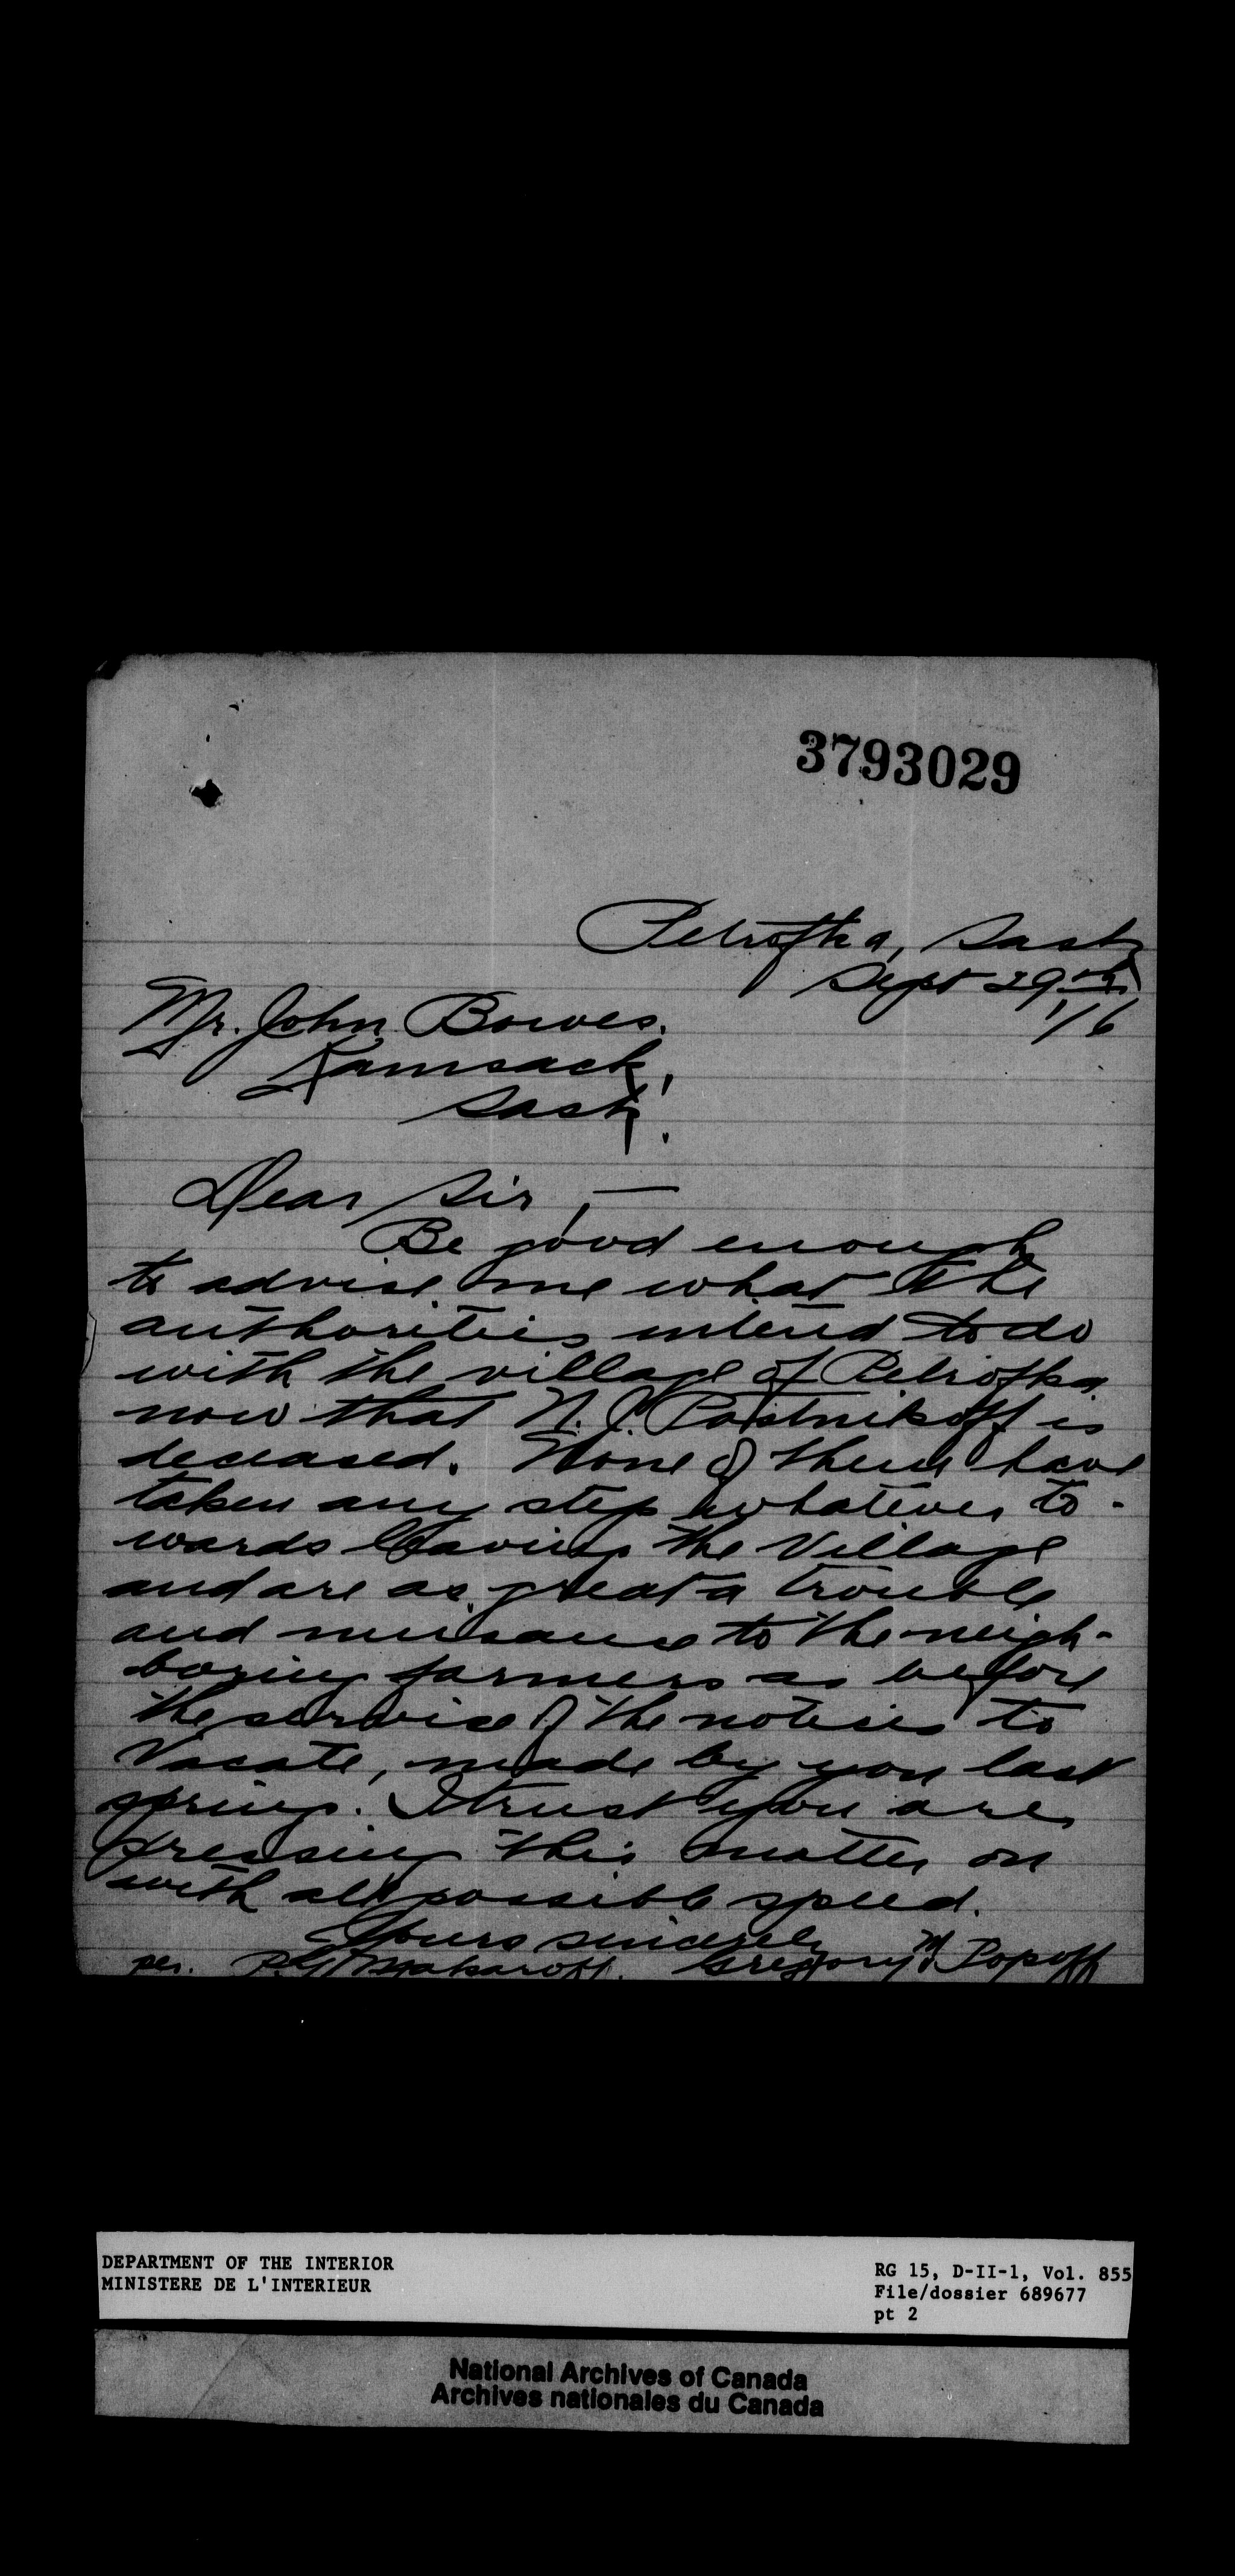 3793029
Petrofka, Sask
Sept 29th
1/16
Mr. John Bowes.
Kamsack,
Sask.
Dear Sir, —
Be good enough
to advise me what the
authorities intend to do
with the village of Petrofka
now that N. J. Postnikoff is
deceased. None of them have
taken any step whatever to-
wards leaving the Village
and are as great a trouble
and nuisance to the neigh-
boring farmers as before
the service of the notices to
Vacate, made by you last
spring. I trust you are
pressing this matter on
with all possible speed.
Yours sincerely
per. Makaroff. Gregory M Popoff
DEPARTMENT OF THE INTERIOR
MINISTERE DE L'INTERIEUR
RG 15, D-II-1, Vol. 855
File/dossier 689677
pt 2
National Archives of Canada
Archives nationales du Canada